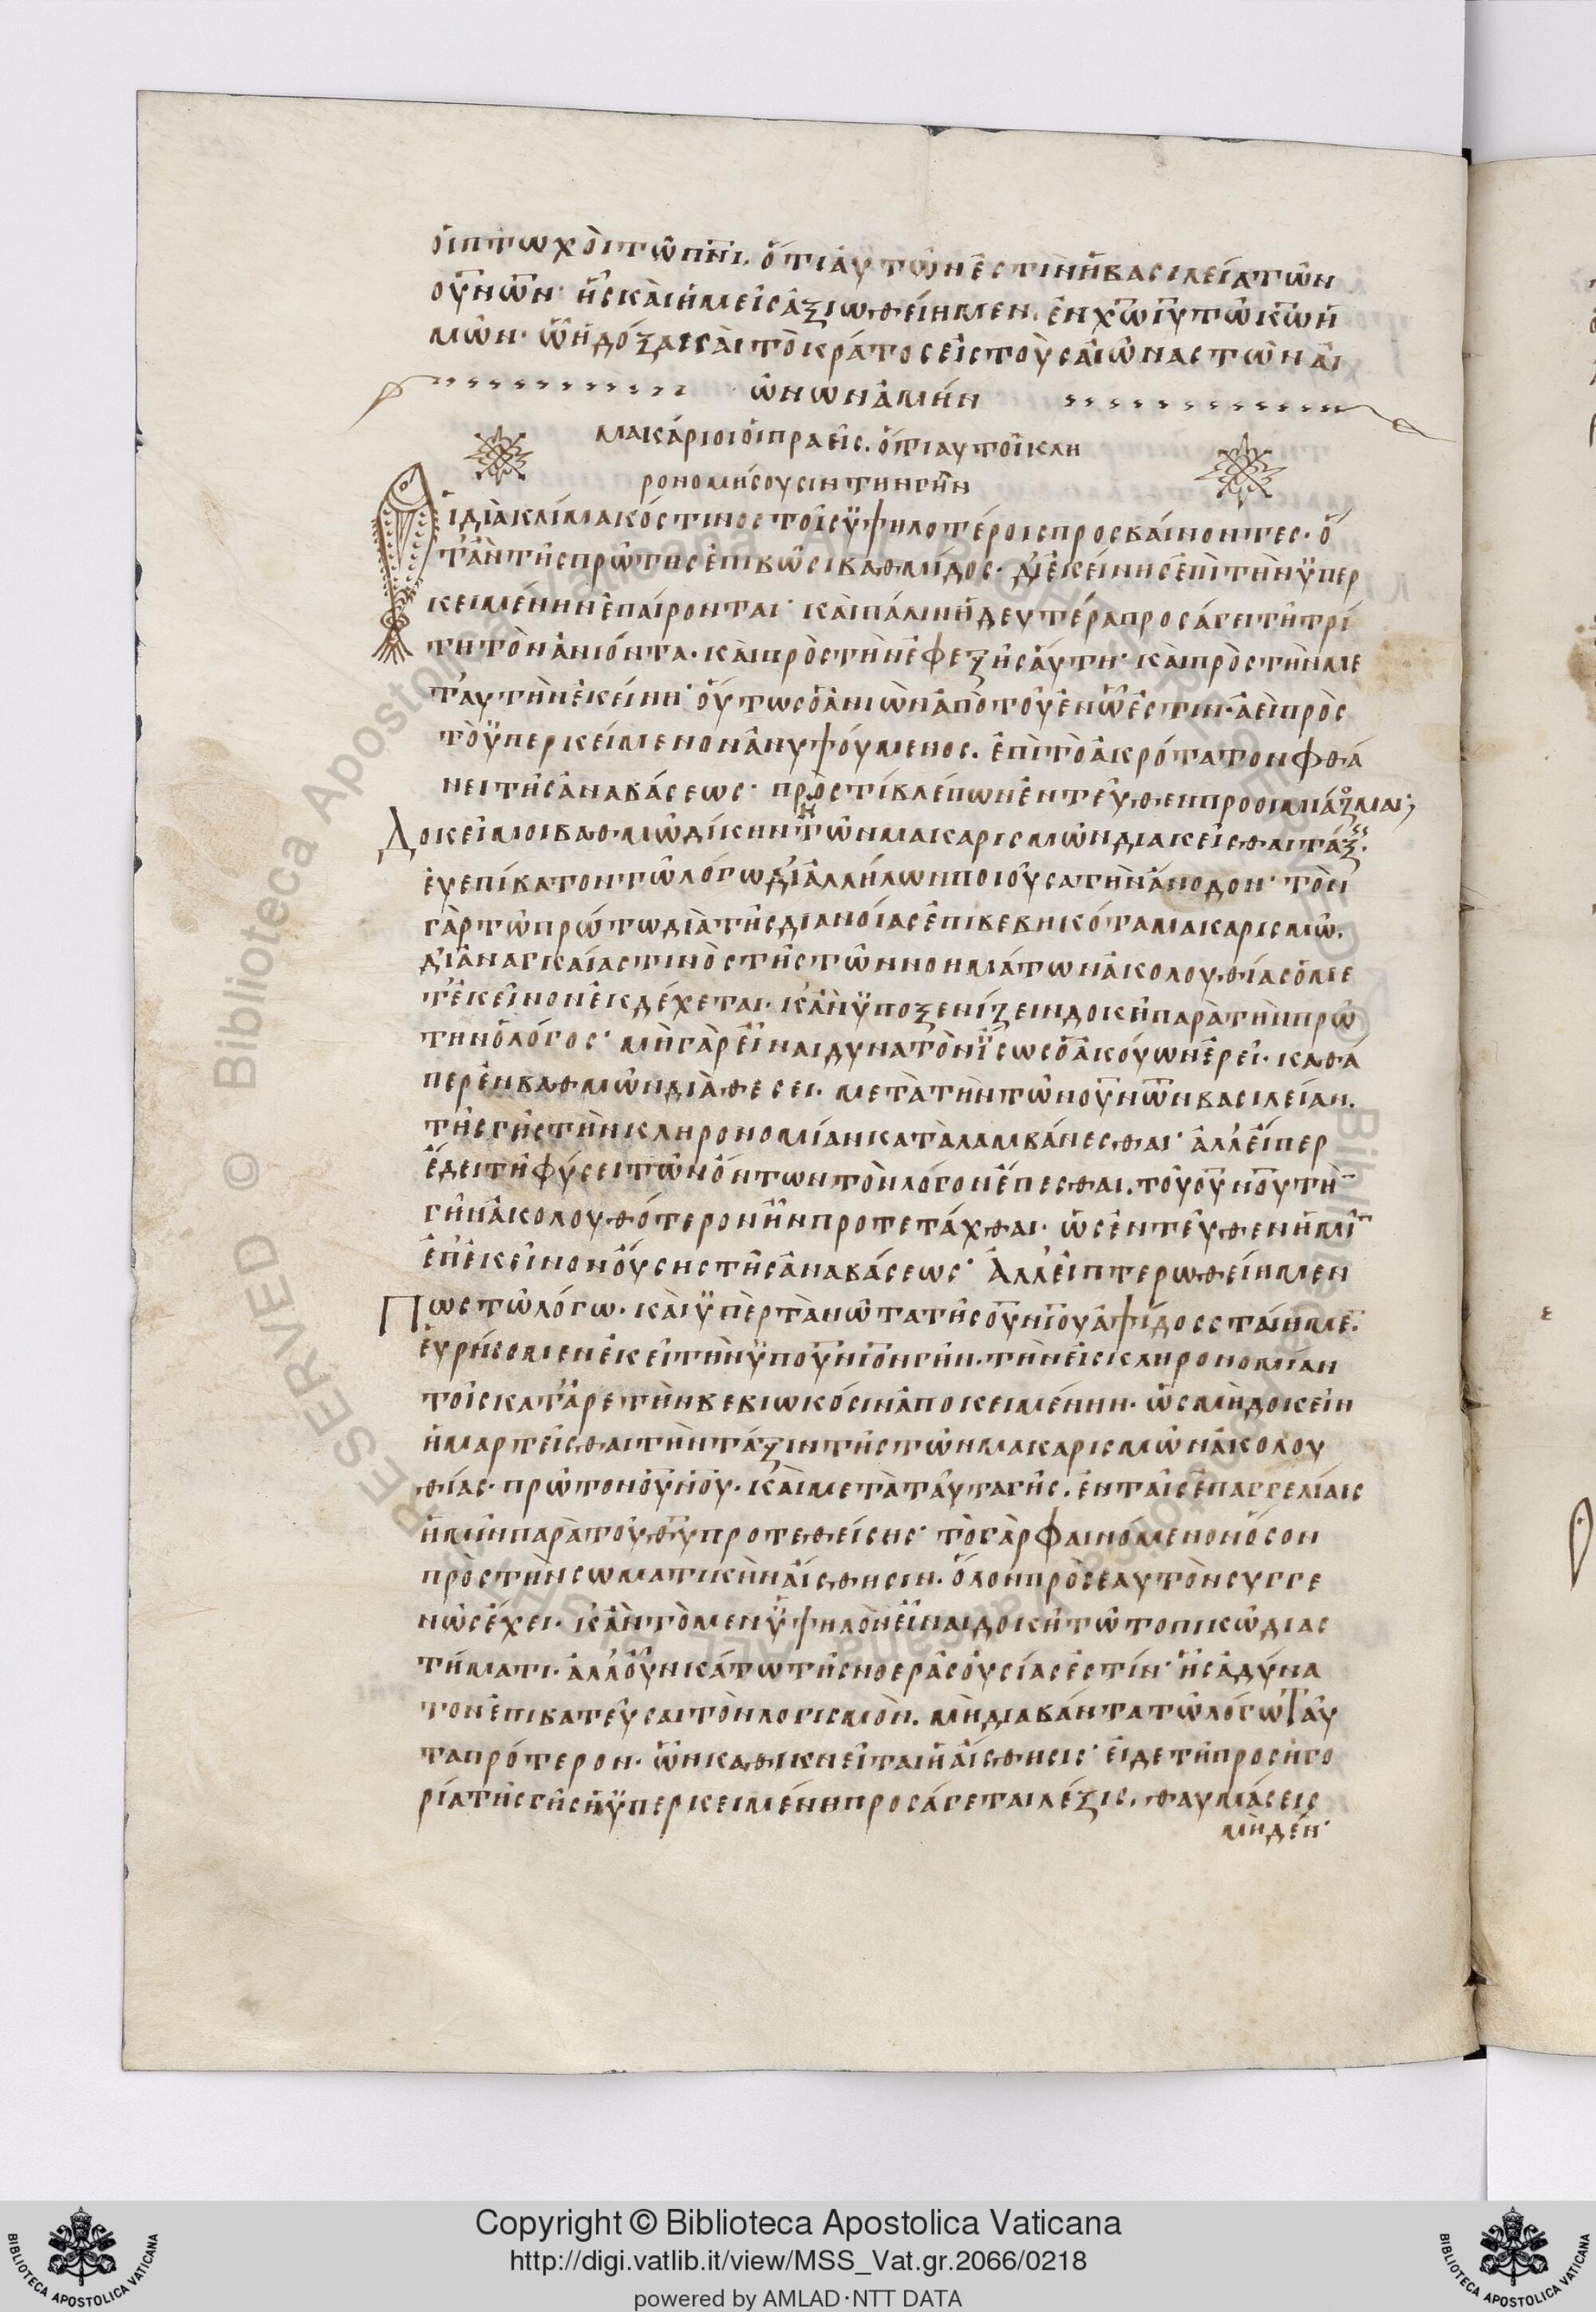 οἱ πτωχοὶ τῶ πνι. ὅτι αὐτῶν ἐστὶν ἡ βασιλεία τῶν
οὐνων· ἧς καὶ ἡμεῖς ἀξιωθείημεν. ἐν χω ιυ τῶ κω ἡ
μῶν· ὧ ἡ δόξα καὶ τὸ κράτος εἰς τοὺς αἰῶνας τῶν αἰ
ώνων ἀμήν
μακάριοι οἱ πραεῖς. ὅτι αὐτοὶ κλη
ρονομήσουσιν την γῆν
Οἱ διὰ κλίμακός τινος τοῖς ὑψηλοτέροις προσβαίνοντες· ὅ
τ' ἂν τῆς πρώτης ἐπιβῶσι βαθμίδος· δι' ἐκείνης ἐπὶ τὴν ὑπερ
κειμένην ἐπαίρονται· καὶ πάλιν ἡ δευτέρα προσάγει τῆ τρί
τη τὸν ἀνιόντα· καὶ πρὸς τὴν ἐφεξῆς αὕτη· καὶ πρὸς τὴν με
τ' αυτὴν ἐκείνη· οὕτως ὁ ἀνιὼν ἀπὸ τοῦ ἐν ὧ ἐστιν· ἀεὶ πρὸς
τὸ ὑπερκείμενον ἀνυψούμενος. ἐπὶ τὸ ἀκρότατον φθά
νει τῆς ἀναβάσεως· πρὸς τί βλέπων ἐντεῦθεν προοιμιάζομαι;
Δοκεῖ μοι βαθμῶν δίκην ἡ τῶν μακαρισμῶν διακεῖσθαι τάξις.
εὐεπίβατον τῶ λόγω δι' ἀλλήλων ποιοῦσα τὴν ἄνοδον· τὸν
γὰρ τῶ πρώτω διὰ τῆς διανοίας ἐπιβεβηκότα μακαρισμῶ.
δι' ἀναγκαίας τινὸς τῆς τῶν νοημάτων ἀκολουθίας ὁ με
τ' ἐκεῖνον ἐκδέχεται· κ' ἂν ὑποξενίζειν δοκῆ παρὰ τὴν πρώ
την ὁ λόγος· μὴ γὰρ εἶναι δυνατὸν ἴσως ὁ ἀκούων ἐρεῖ· καθά
περ ἐν βαθμῶν διαθέσει· μετὰ τὴν τῶν οὐνων βασιλείαν.
τῆς γῆς τὴν κληρονομίαν καταλαμβάνεσθαι· ἀλλ' εἴπερ
ἔδει τῆ φύσει τῶν ὄντων τὸν λόγον ἕπεσθαι. τοῦ οὐνου τὴν
γῆν ἀκολουθότερον ἦν προτετάχθαι· ὡς ἐντεῦθεν ἡμῖν
ἐπ' ἐκεῖνον οὔσης τῆς ἀναβάσεως· Ἀλλ' εἰ πτερωθείημεν
Πως τῶ λόγω· καὶ ὑπὲρ τὰ νῶτα τῆς οὐνιου ἀψίδος σταίημεν.
εὑρήσομεν ἐκεῖ τὴν ὑπουνιον γῆν· τὴν εἰς κληρονομίαν
τοῖς κατ' ἀρετὴν βεβιωκόσιν ἀποκειμένην· ὡς μὴ δοκεῖν
ἡμαρτεῖσθαι τὴν τάξιν τῆς τῶν μακαρισμῶν ἀκολου
θίας· πρῶτον οὐνου· καὶ μετὰ ταῦτα γῆς. ἐν ταῖς ἐπαγγελίαις
ἡμῖν παρὰ τοῦ θυ προτεθείσης· τὸ γὰρ φαινόμενον ὅσον
πρὸς τὴν σωματικὴν αἴσθησιν. ὅλον πρὸς ἑαυτὸν συγγε
νῶς ἔχει· κ' ἂν τὸ μεν ὑψηλὸν εἶναι δοκῆ τῶ τοπικῶ δίας
τήματι· ἀλλ' οὖν κάτω τῆς νοερᾶς οὐσίας ἐστίν· ἧς ἀδύνα
τον ἐπιβατεῦσαι τὸν λογισμὸν. μὴ διαβάντα τῶ λόγω Ταῦ
τα πρότερον· ὧν καθικνεῖται ἡ αἴσθησις· εἰ δε τῆ προσηγο
ρία τῆς γῆς ἡ ὑπερκειμένη προσάγεται λέξις. θαυμάσεις
μηδέν·
Copyright © Biblioteca Apostolica Vaticana
http://digi.vatlib.it/view/MSS_Vat.gr.2066/0218
powered by AMLAD·NTT DATA